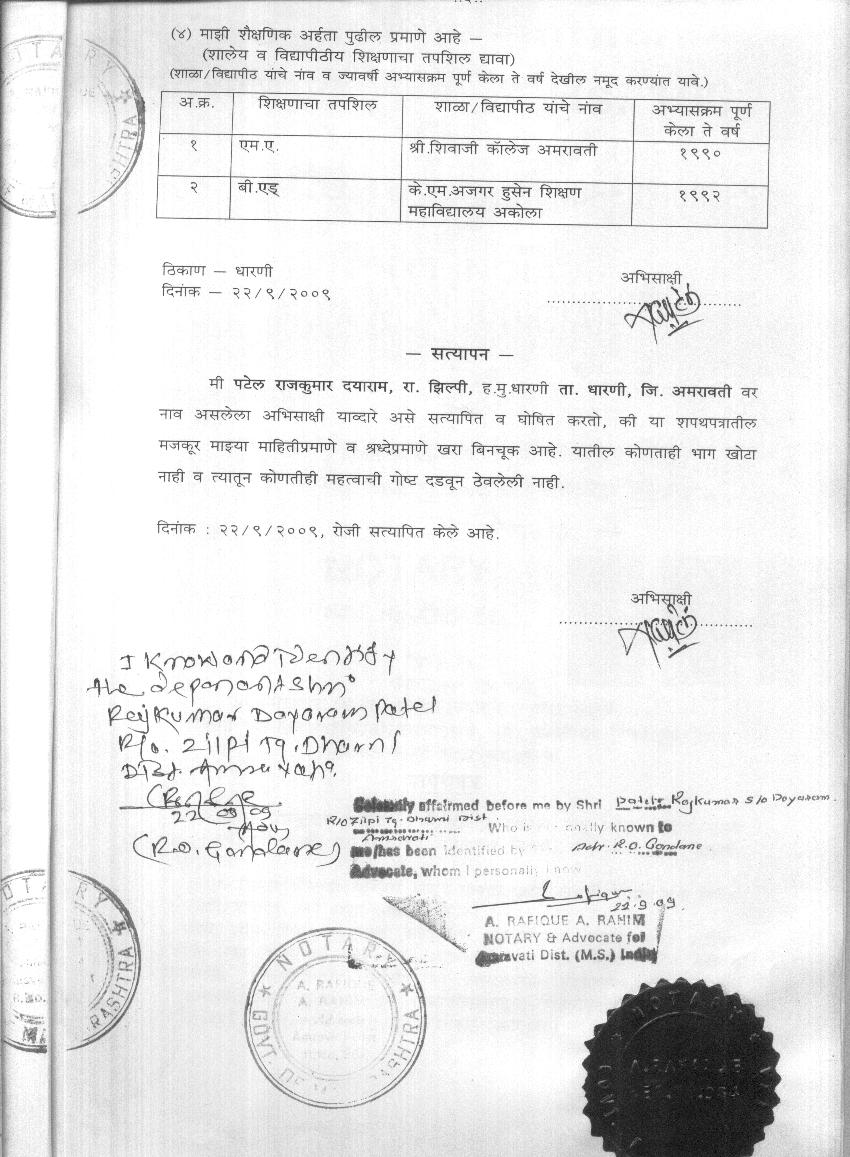 (४) माझी शैक्षणिक अर्हता पुढील प्रमाणे आहे –
(शालेय व विद्यापीठीय शिक्षणाचा तपशिल द्यावा)
(शाळा/विद्यापीठ यांचे नांव व ज्यावर्षी अभ्यासक्रम पूर्ण केला ते वर्ष देखील नमूद करण्यांत यावे.)
अ.क्र. शिक्षणाचा तपशिल शाळा/विद्यापीठ यांचे नांव अभ्यासक्रम पूर्ण
केला ते वर्ष
१ एम.ए. श्री.शिवाजी कॉलेज अमरावती १९९०
२ बी.एड् के.एम.अजगर हुसेन शिक्षण १९९२
महाविद्यालय अकोला
ठिकाण – धारणी
दिनांक – २२/९/२००९
अभिसाक्षी
– सत्यापन –
मी पटेल राजकुमार दयाराम, रा. झिल्पी, ह.मु.धारणी ता. धारणी, जि. अमरावती वर
नाव असलेला अभिसाक्षी याव्दारे असे सत्यापित व घोषित करतो, की या शपथपत्रातील
मजकूर माझ्या माहितीप्रमाणे व श्रध्देप्रमाणे खरा बिनचूक आहे. यातील कोणताही भाग खोटा
नाही व त्यातून कोणतीही महत्वाची गोष्ट दडवून ठेवलेली नाही.
दिनांक : २२/९/२००९, रोजी सत्यापित केले आहे.
अभिसाक्षी
I Know and
the
Rajkumar Dayaram Patel
R/o. Zilpi Tq. Dharni
22/09/09
Adv
(R.O. Gondane)
Solemnly affirmed before me by Shri Patel Rajkumar S/o Dayaram.
R/o Zilpi Tq. Dharni Dist
Amravati Who is personally known to
me/has been identified by Adv. R.O. Gondane
Advocate, whom I personally know
22.9.09
A. RAFIQUE A. RAHIM
NOTARY & Advocate for
Amravati Dist. (M.S.) India
NOTARY
A. RAFIQUE
GOVT. OF
NOTARY
A. RAFIQUE